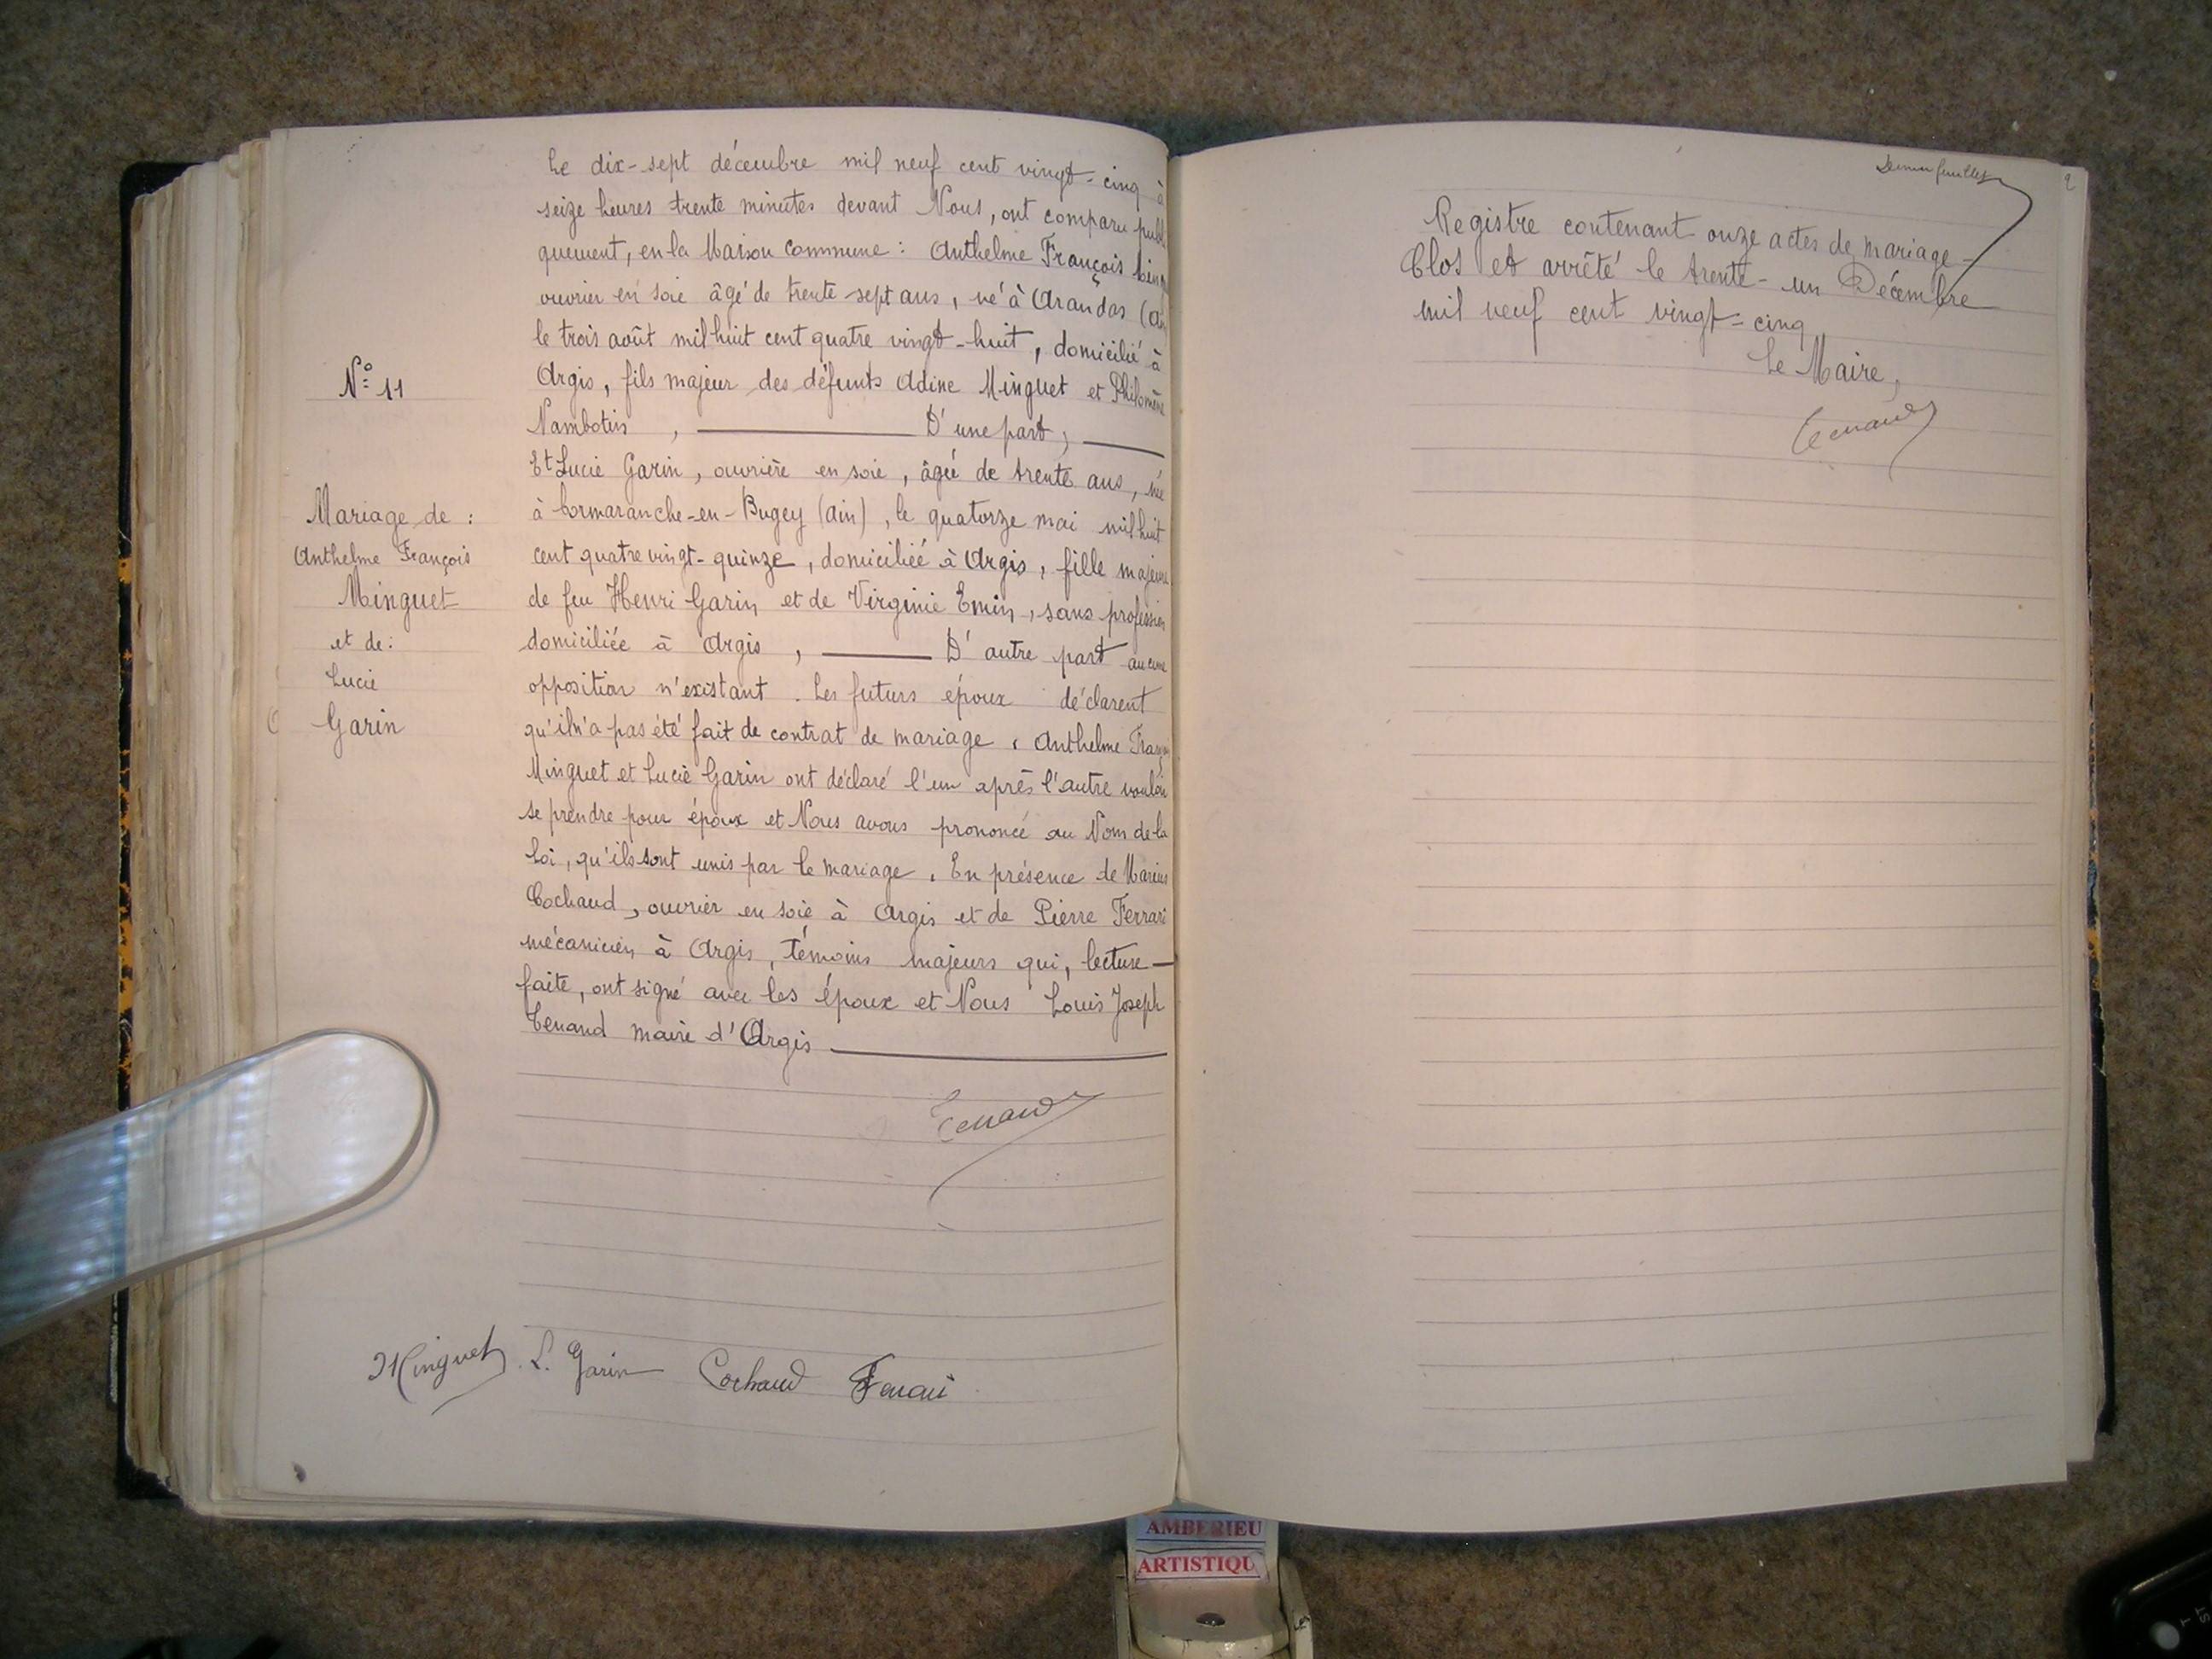 N° 11
Mariage de :
Anthelme François
Minguet
et de :
Lucie
Garin
Le dix-sept décembre mil neuf cent vingt-cinq à
seize heures trente minutes devant Nous, ont comparu publi
quement, en la Maison commune : Anthelme François
ouvrier en soie âgé de trente-sept ans, né à Arandas (Ain
le trois août mil huit cent quatre vingt-huit, domicilié à
Argis, fils majeur des défunts Adine Minguet et Philomène
Nambotin , D'une part,
Et Lucie Garin, ouvrière en soie, âgée de trente ans, née
à Cormaranche-en-Bugey (Ain), le quatorze mai mil huit
cent quatre vingt-quinze, domiciliée à Argis, fille majeure
de feu Henri Garin et de Virginie Emin, sans profession
domiciliée à Argis , D'autre part aucune
opposition n'existant. Les futurs époux déclarent
qu'il n'a pas été fait de contrat de mariage. Anthelme François
Minguet et Lucie Garin ont déclaré l'un après l'autre vouloir
se prendre pour époux et Nous avons prononcé au Nom de la
Loi, qu'ils sont unis par le mariage. En présence de Marius
Cochaud, ouvrier en soie à Argis et de Pierre Ferrari
mécanicien à Argis, témoins majeurs qui, lecture
faite, ont signé avec les époux et Nous Louis Joseph
Tenand maire d'Argis
Tenand
Minguet L. Garin Cochaud Ferrari
Dernier feuillet
Registre contenant onze actes de mariage
Clos et arrêté le trente-un Décembre
mil neuf cent vingt-cinq
Le Maire,
Tenand
AMBERIEU
ARTISTIQU